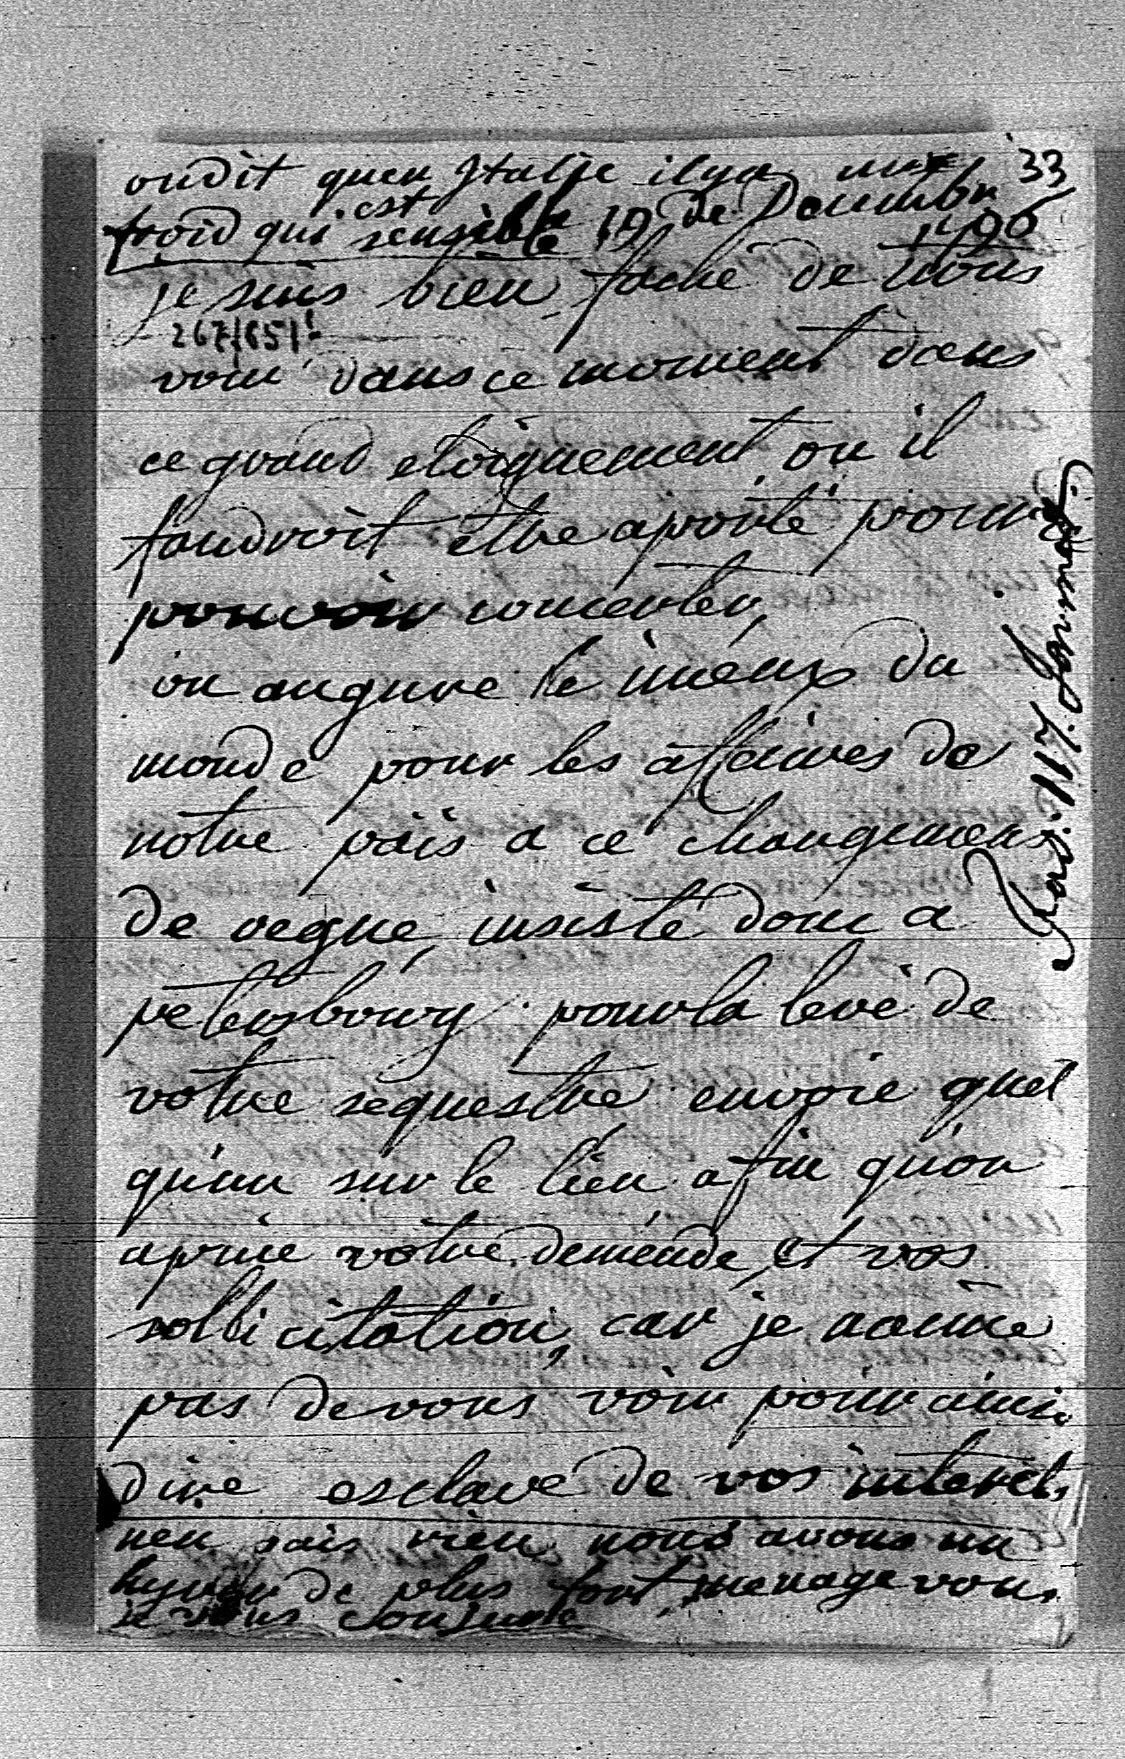 ondit quen Italie ilya un 33
froid qui est sensible 19 de Decembr
1796
je suis bien fache de vous
267/651
voir dans ce moment dans
ce grand eloignement ou il
faudroit etre aporté pour
pouvoir concerter,
on augure le mieux du
monde pour les affaires de
notre païs a ce changement
de regne, insisté donc a
petersbourg pour la levé de
votre sequestre envoie quel
qu'un sur le lieu afin qu'on
apruie votre demende, et vos
sollicitation, car je naime
pas de vous voir pour ainsi
dire esclave de vos interets
nen sais rien nous avons un
hyver de plus fort, menage vous
je vous conjure